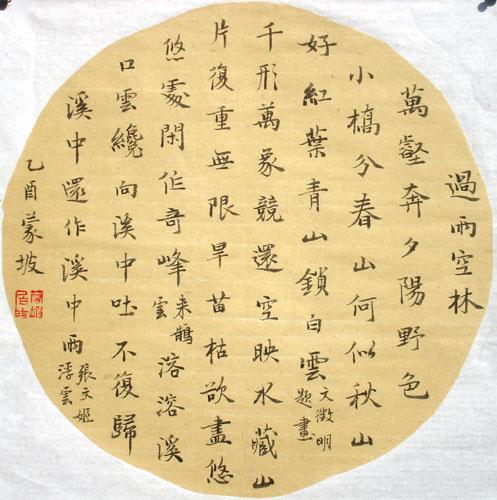 過雨空林
萬壑奔夕陽野色
小橋分春山何似秋山
好紅葉青山鎖白雲文徵明題畫
千形萬象競還空映水藏山
片復重無限旱苗枯欲盡悠
悠處閑作奇峰來鵠雲溶溶溪
口雲纔向溪中吐不復歸
溪中還作溪中雨張文姬浮雲
乙酉蒙坡